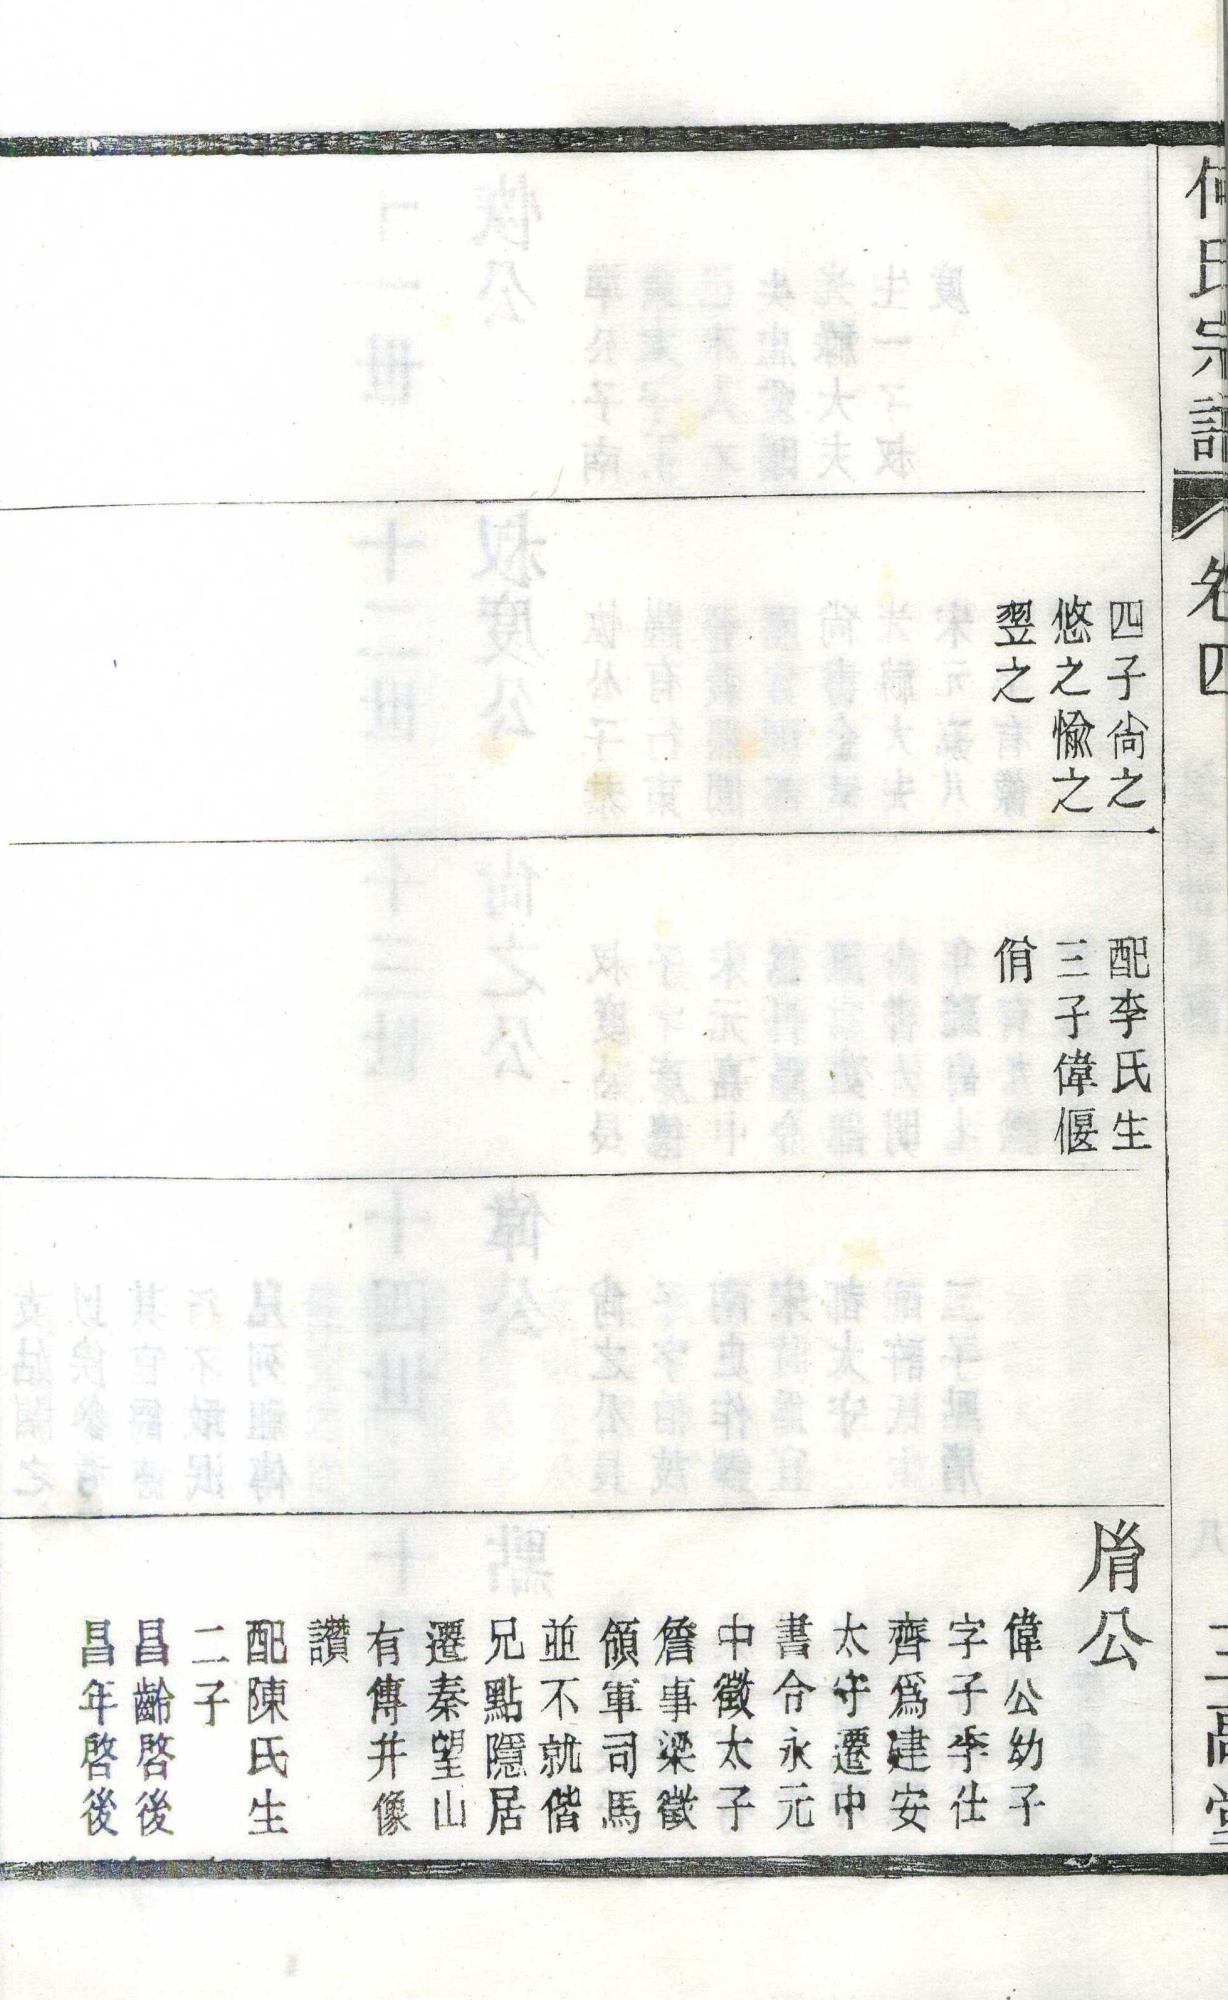 何氏宗譜
卷四
三高堂
四子尙之
悠之愉之
翌之
配李氏生
三子偉偃
佾
胤公
偉公幼子
字子季仕
齊爲建安
太守遷中
書令永元
中徵太子
詹事梁徵
領軍司馬
並不就偕
兄點隱居
遷秦望山
有傳并像
讚
配陳氏生
二子
昌齡啓後
昌年啓後